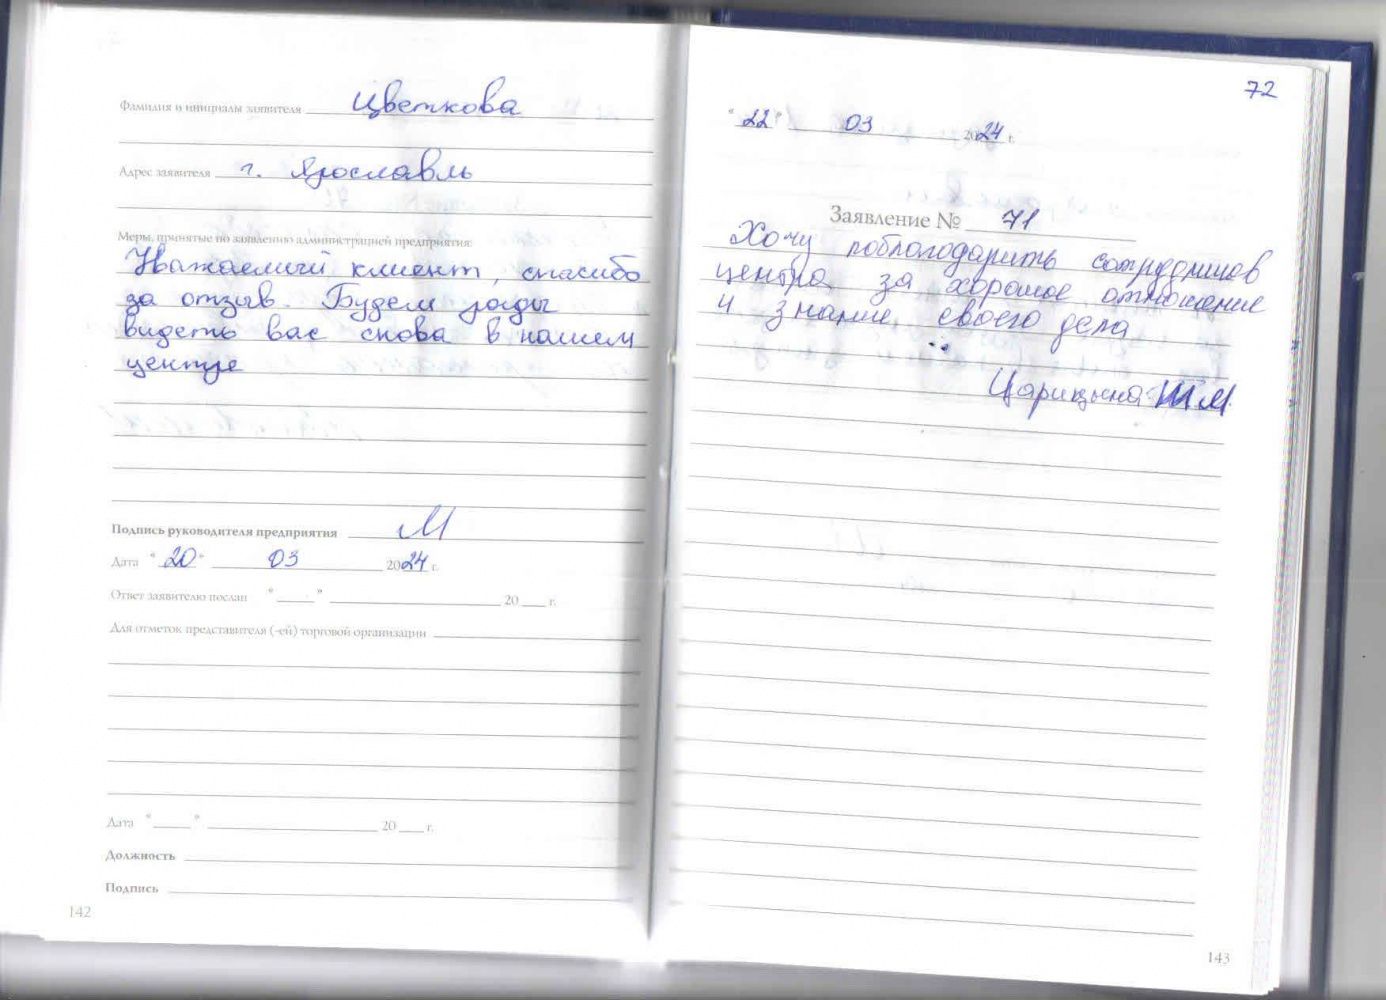 Фамилия и инициалы заявителя Цветкова
Адрес заявителя г. Ярославль
Меры, принятые по заявлению администрацией предприятия:
Уважаемый клиент, спасибо
за отзыв. Будем рады
видеть вас снова в нашем
центре
Подпись руководителя предприятия М
Дата "20" 03 2024 г.
Ответ заявителю послан " " 20 г.
Для отметок представителя (-ей) торговой организации
Дата " " 20 г.
Должность
Подпись
142
72
"22" 03 2024 г.
Заявление № 71
Хочу поблагодарить сотрудников
центра за хорошое отношение
и знание своего дела
Царицына М.
143